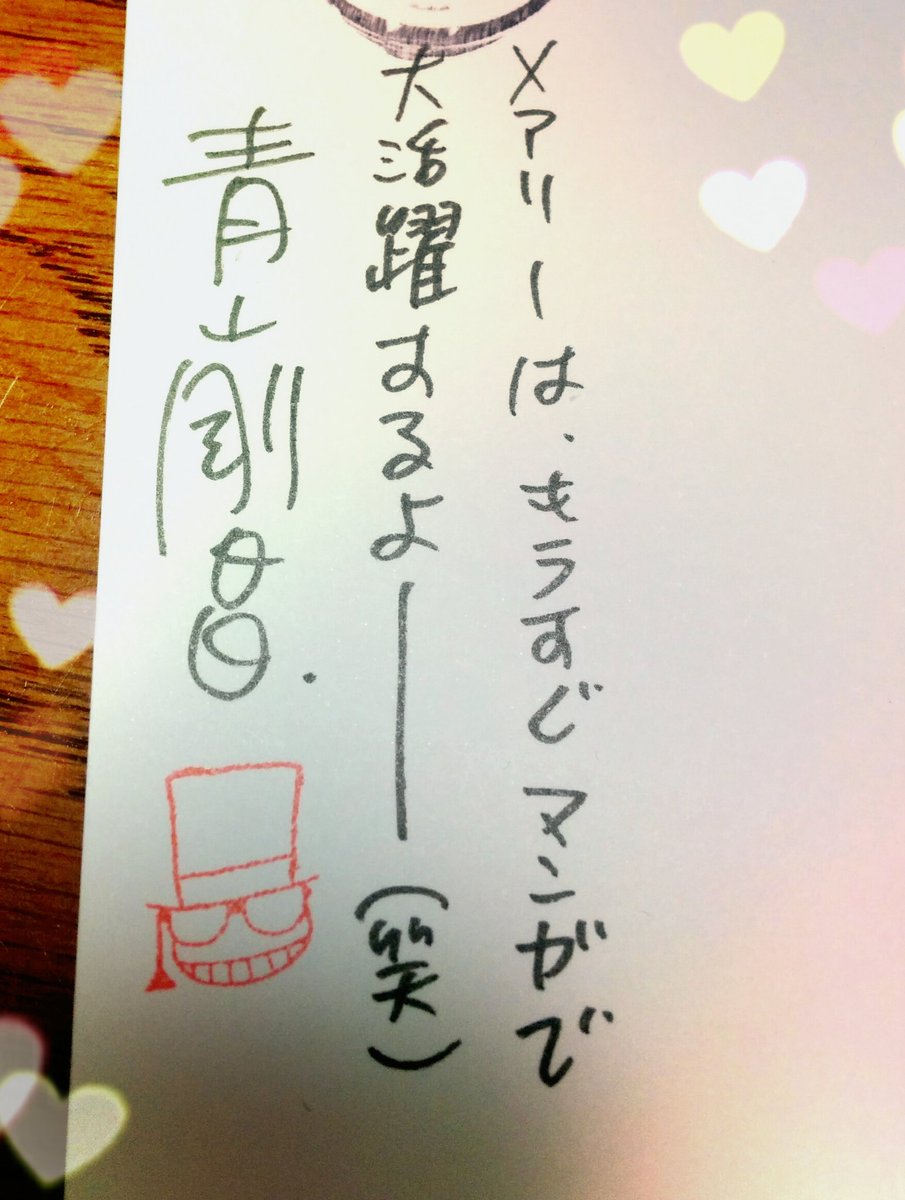 メアリーは、もうすぐマンガで
大活躍するよー(笑)
青山剛昌.